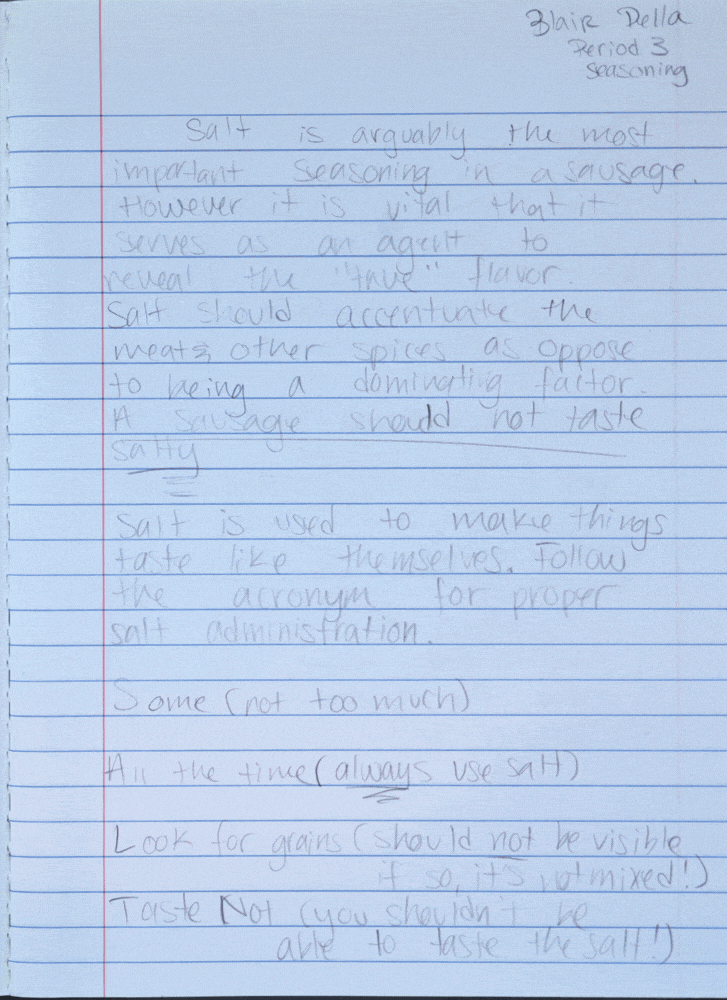 Blair Della
Period 3
Seasoning
Salt is arguably the most
important seasoning in a sausage.
However it is vital that it
serves as an agent to
reveal the "true" flavor.
Salt should accentuate the
meat & other spices as oppose
to being a dominating factor.
A sausage should not taste
salty
Salt is used to make things
taste like themselves. Follow
the acronym for proper
salt administration.
Some (not too much)
All the time (always use salt)
Look for grains (should not be visible
if so, it's not mixed!)
Taste Not (you shouldn't be
able to taste the salt!)